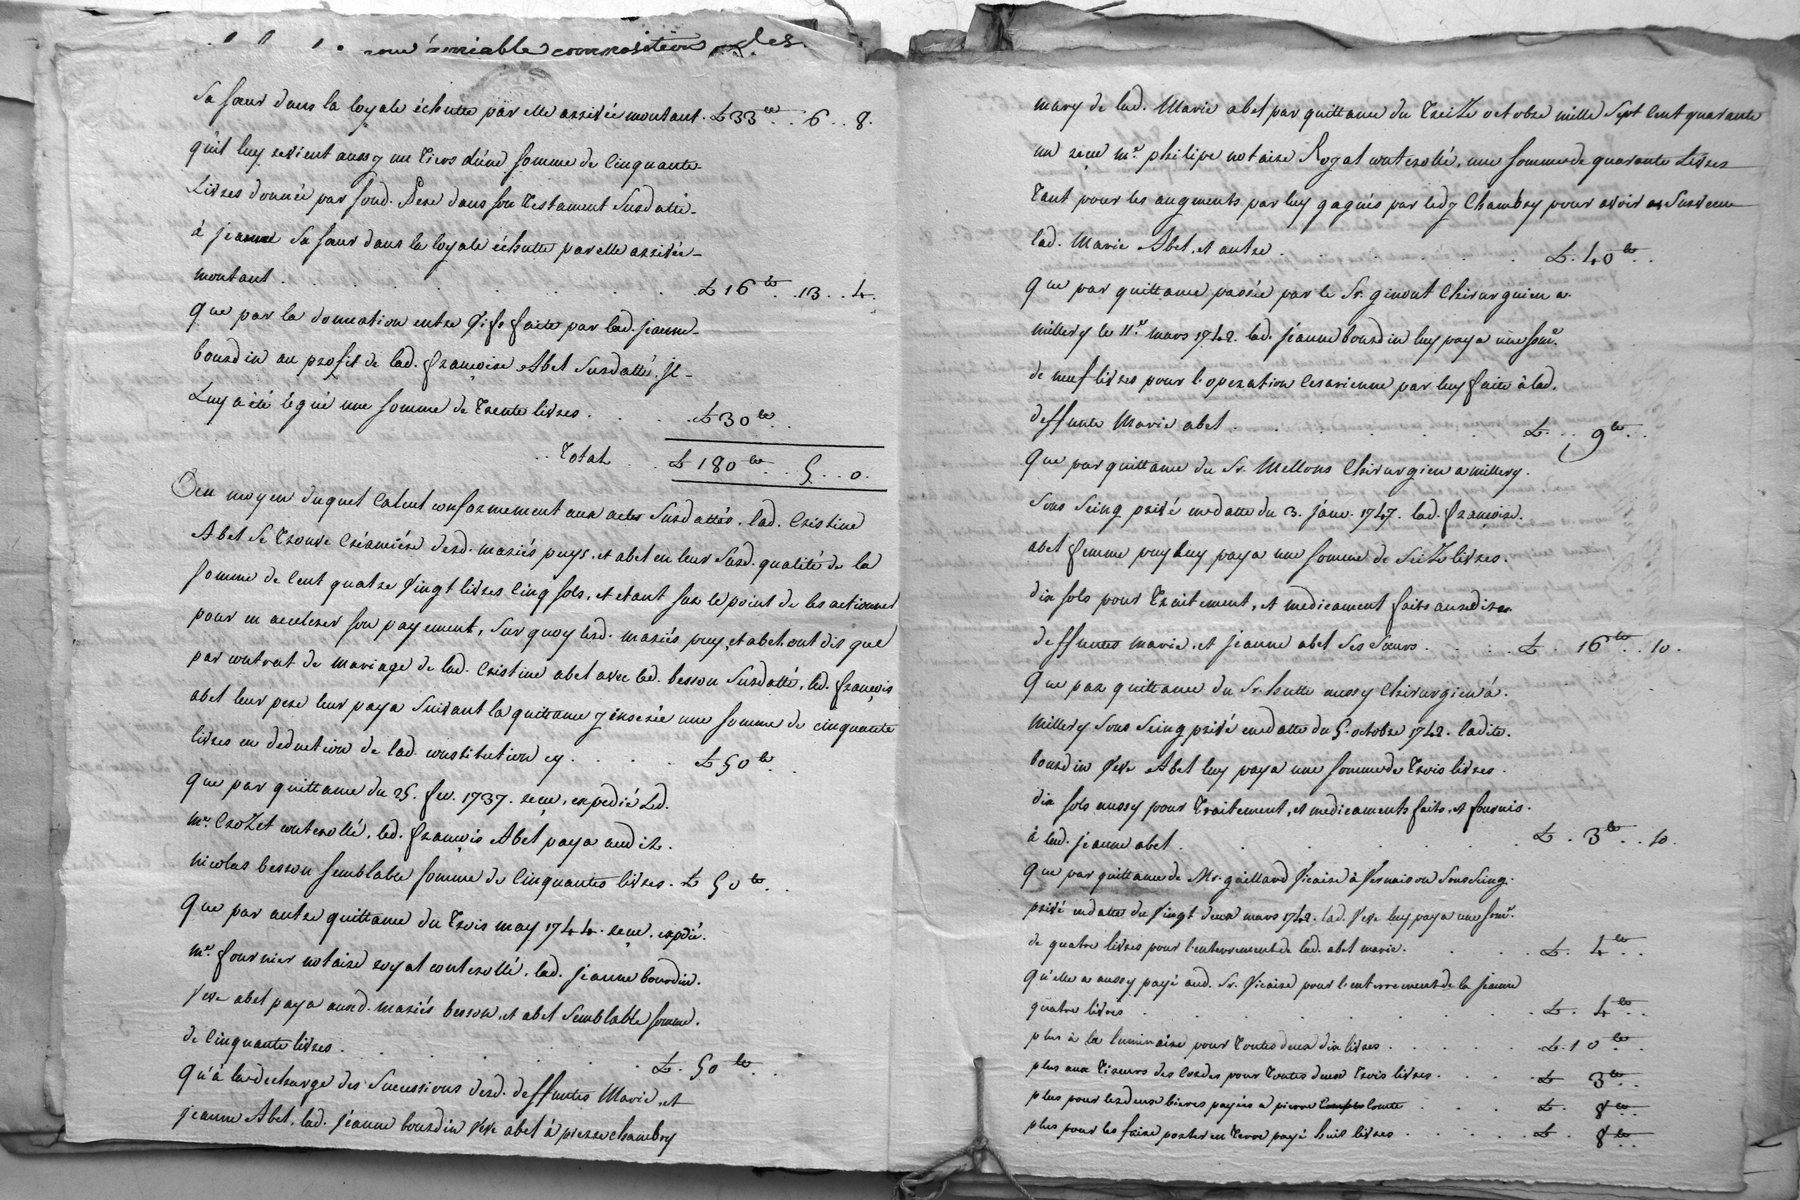 amiable composition des
sa sœur dans la loyale échutte par elle arrivée montant. £ 33 ll .. 6 .. 8.
qu'il luy revient aussy un tiers d'une somme de cinquante
Livres donnée par sond. Pere dans son testament susdatté
à jeanne sa sœur dans la loyale échutte par elle arrivée
montant . . . £ 16 ll .. 13 .. 4.
Que par la donnation entre vifs faite par lad. jeanne
bourdin au profit de lad. françoise Abel susdatté, jl
Luy a été legué une somme de trente livres . . . £ 30 ll ..
.. Total . . £ 180 ll .. 5 .. 0.
au moyen duquel calcul conformement aux actes susdattés, lad. Cristine
Abel se trouve créancière desd. mariés puys, et abel en leur susd. qualité de la
somme de cent quatre vingt livres cinq sols, et etant sur le point de les actionner
pour en accelerer son payement, sur quoy lesd. mariés puy, et abel ont dit que
par contrat de mariage de lad. Cristine abel avec led. besson susdatté, led. françois
abel leur pere leur paya suivant la quittance y inserée une somme de cinquante
livres en deduction de lad. constitution cy . . . £ 50 ll ..
Que par quittance du 25. fev. 1737. reçue, expedié Led.
me. Crozet controllé, led. françois Abel paya audit
nicolas besson semblable somme de Cinquantes livres . £ 50 ll ..
Que par autre quittance du trois may 1744. reçue, expdié.
me. fournier notaire royal controllé, lad. jeanne bourdin.
veve abel paya auxd. mariés besson, et abel semblable somme.
de Cinquante livres . . . £. 50 ll ..
Qu'à la decharge des successions desd. deffuntes Marie, et
jeanne Abel, lad. jeanne bourdin veve abel à pierre chambry
mary de lad. Marie abel par quittance du treize octobre mille sept cent quarante
un reçue me. philipe notaire Royal controllé, une somme de quarante Livres
tant pour les augments par luy gagnés par led. Chambry pour avoir survecu
lad. Marie Abel, et autre . . . £. 40 ll ..
Que par quittance passée par le Sr. ginout Chirurgien a.
millery le 11e. mars 1742. lad. jeanne bourdin luy paya une som.
de neuf livres pour l'operation Cesarienne par luy faite à lad.
deffunte Marie abel . . . £ ... 9 ll ..
Que par quittance du Sr. Mellons Chirurgien a millery.
sous seing privé en datte du 3. janv. 1747. lad. françoise.
abel femme puy luy paya une somme de seize livres.
dix sols pour traitement, et medicament faits auxdites
deffuntes marie, et jeanne abel ses sœurs . . . £. 16 ll .. 10.
Que par quittance du Sr. hutte aussy Chirurgien à.
Millery sous seing privé en datte du 5. octobre 1742. ladite.
bourdin veve Abel luy paya une somme de trois livres.
dix sols aussy pour traitement, et medicaments faits, et fournis.
à lad. jeanne abel . . . £. 3 ll .. 10.
Que par quittance de Mr. gaillard vicaire à vernaison sous seing.
privé en datte du vingt deux mars 1742. lad. veve luy paya une som.
de quatre livres pour l'enterrement de lad. abel marie . . . £. 4 ll ..
Qu'elle a aussy payé aud. Sr. vicaire pour l'enterrement de la jeanne
quatre livres . . . £. 4 ll ..
plus à la luminaire pour toutes deux dix livres . . . £. 10 ll ..
plus aux tireurs des cordes pour toutes deux trois livres . . . £ 3 ll ..
plus pour lesd. deux bieres payées a pierre comte . . . £. 8 ll ..
plus pour les faire porter en terre payé huit livres . . . £. 8 ll ..